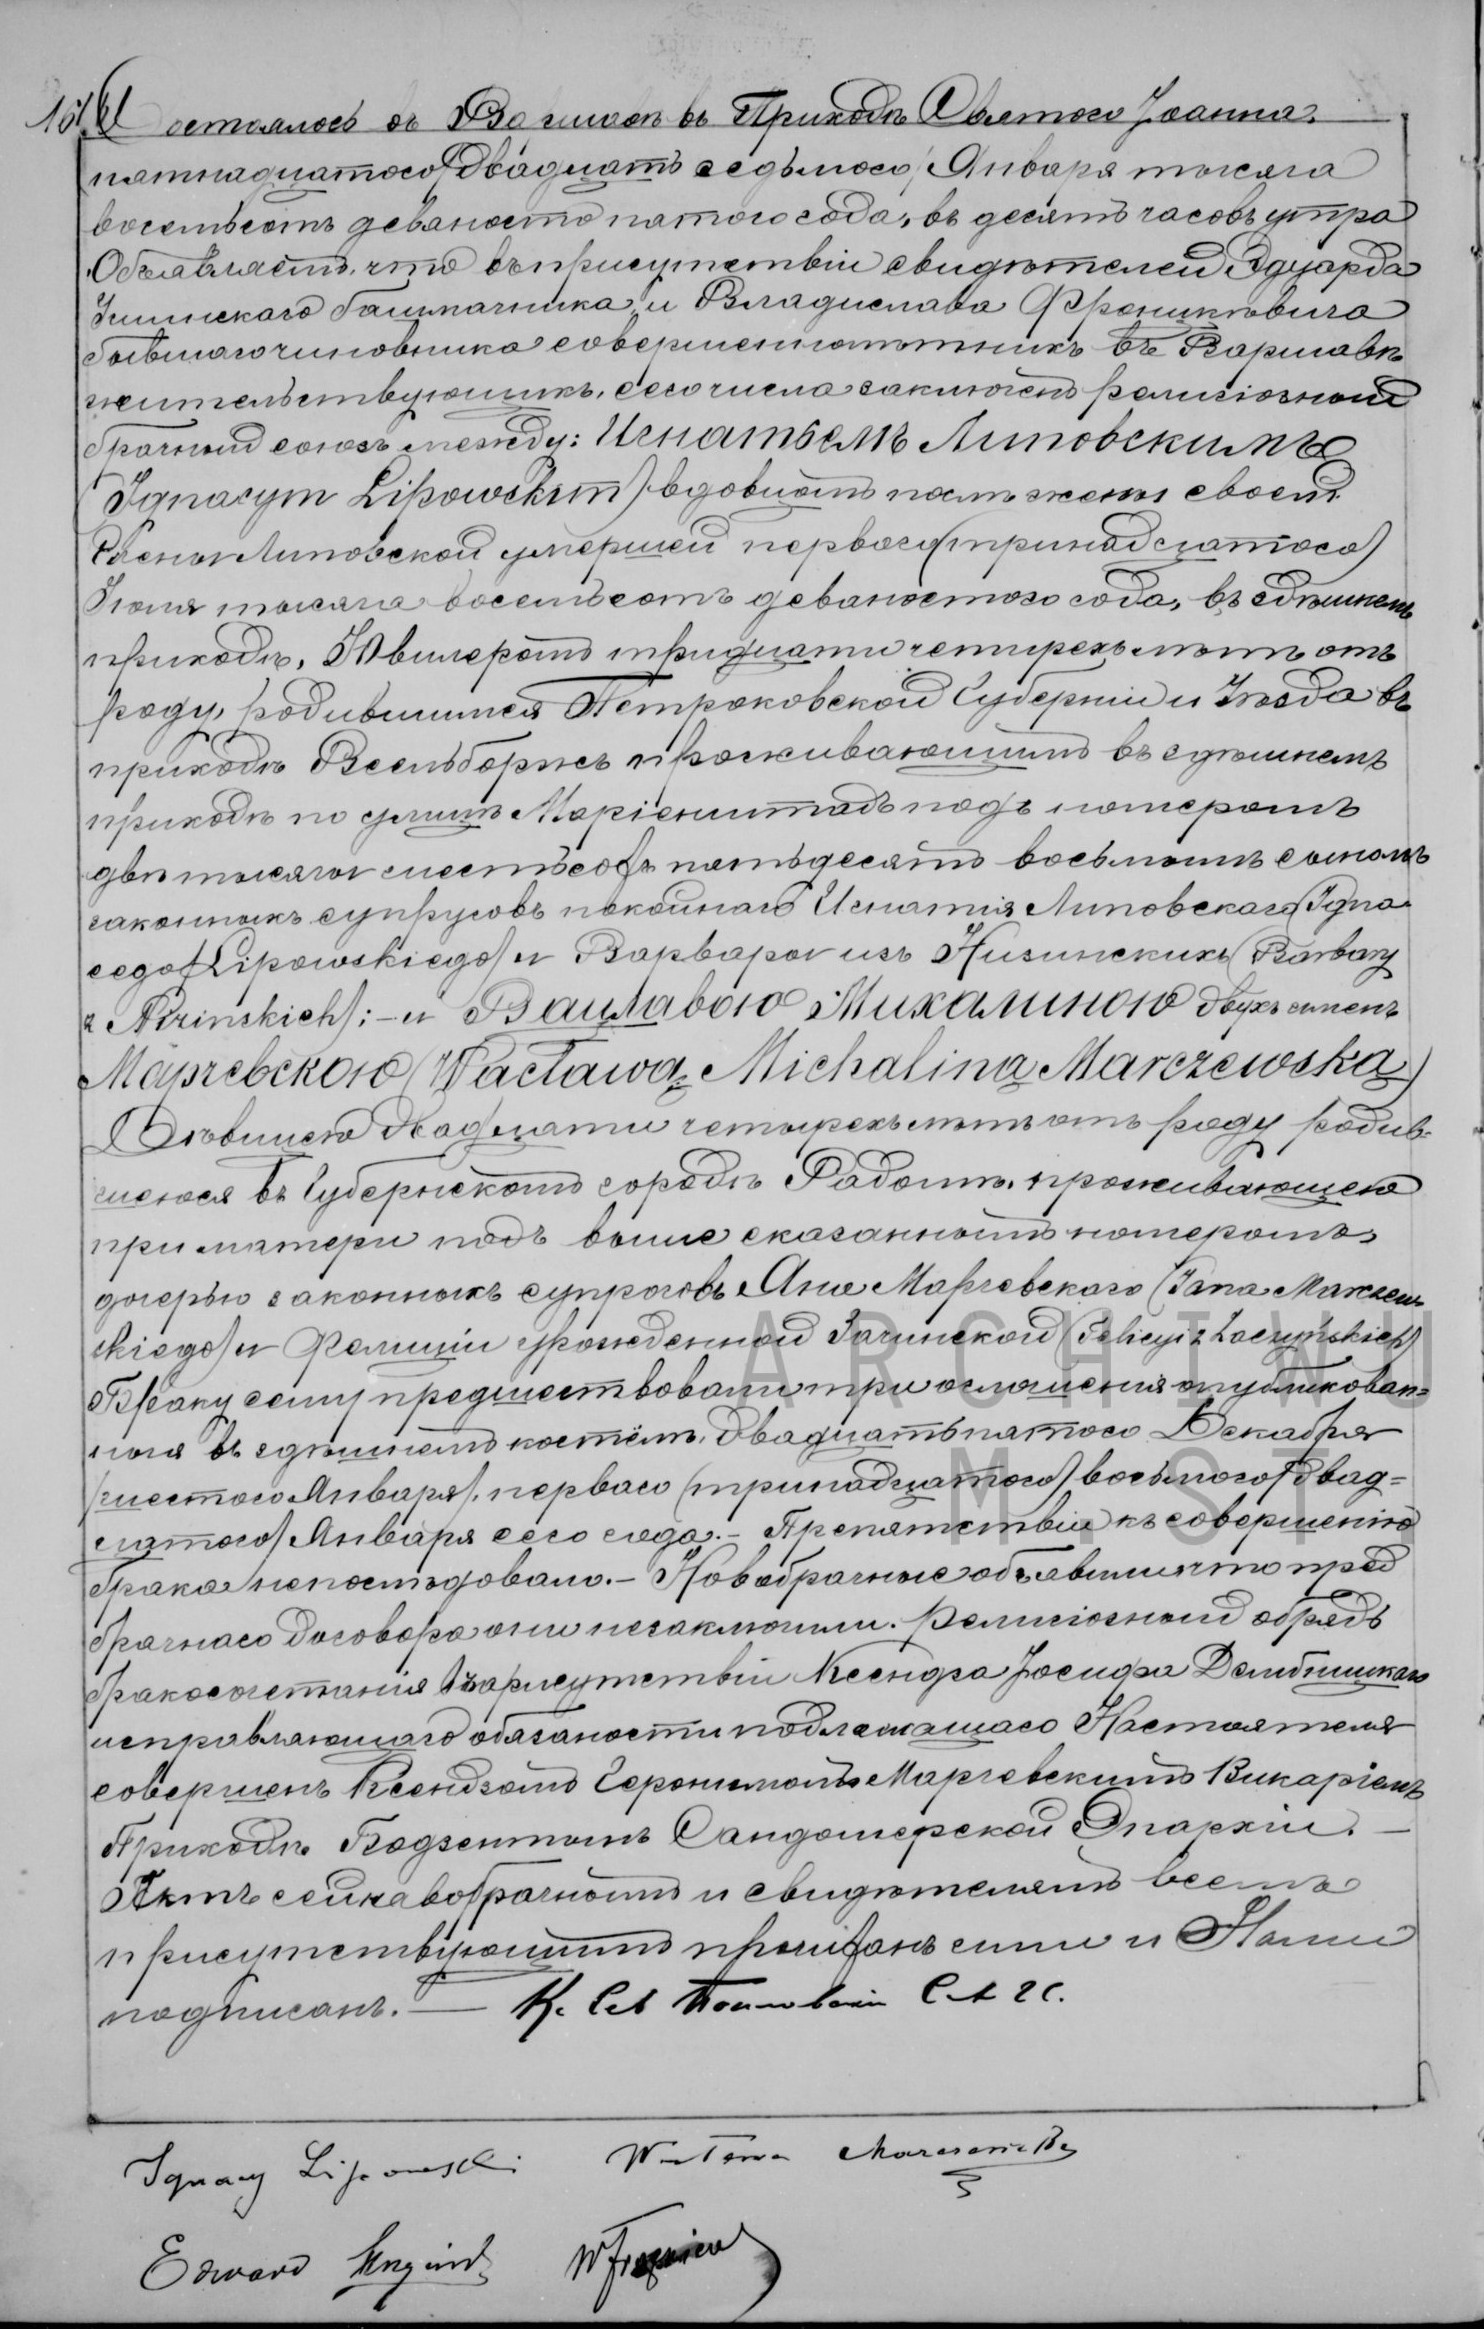 Состоялось въ Варшавѣ въ Приходѣ Святого Іоанна
пятнадцатого /двадцать седьмого/ Января тысяча
восемьсотъ девяносто пятого года, въ десять часовъ утра
Объявляемъ, что въ присутствіи свидѣтелей Эдуарда
башмачника и Владислава
бывшаго чиновника совершеннолѣтнихъ въ Варшавѣ
жительствующихъ, сего числа заключенъ религіозный
брачный союзъ между: Игнатьемъ Липовскимъ
(Ignacym Lipowskim) вдовцомъ послѣ жены своей
Елены Липовской умершей первого (тринадцатого)
Іюля тысяча восемьсотъ девяностого года, въ здѣшнемъ
приходѣ, Ювилеромъ тридцати четырехъ лѣтъ отъ
роду, родившимся Петроковской Губерніи и Уѣзда въ
приходѣ проживающимъ въ здѣшнемъ
приходѣ по улицѣ Маріенштадъ подъ номеромъ
двѣ тысячи шестьсотъ пятьдесятъ восьмымъ сыномъ
законныхъ супруговъ покойнаго Игнатія Липовскаго (Igna
cego Lipowskiego) и Варвары изъ Низинскихъ (Barbary
z Nizinskich); - и Вацлавою Михалиною двухъ именъ
Марчевскою (Wacława Michalina Marczewska)
Дѣвицею двадцати четырехъ лѣтъ отъ роду родив-
шеюся въ Губернскомъ городѣ Радомѣ, проживающею
при матери подъ выше сказаннымъ номеромъ,
дочерью законныхъ супруговъ Яна Марчевского (Jana Marczew
skiego) и Фелиціи урожденной (Felicyi z Łoczyńskich)
Браку сему предшествовали три оглашенія опубликован=
ныя въ здѣшнемъ костёлѣ, двадцать пятого Декабря
/шестого Января/, первого (тринадцатого) восьмого /двад=
цатого/ Января сего года. - Препятствія къ совершенію
брака непослѣдовало. - Новобрачные объявили что пред
брачнаго договора они незаключили. Религіозный обрядъ
бракосочетанія въ присутствіи Ксендза Іосифа
исправляющаго обязаности подлежащаго Настоятеля
совершенъ Ксендзомъ Геронимомъ Марчевскимъ Викаріемъ
Приходѣ Бодзентынъ Сандомерской Эпархіи. -
Актъ сей новобрачнымъ и свидѣтелямъ всемъ
присутствующимъ прочитанъ ими и Нами
подписанъ. -
Ignacy Lipowski Wacława Marczewska
Edward
ARCHIWUM
ST